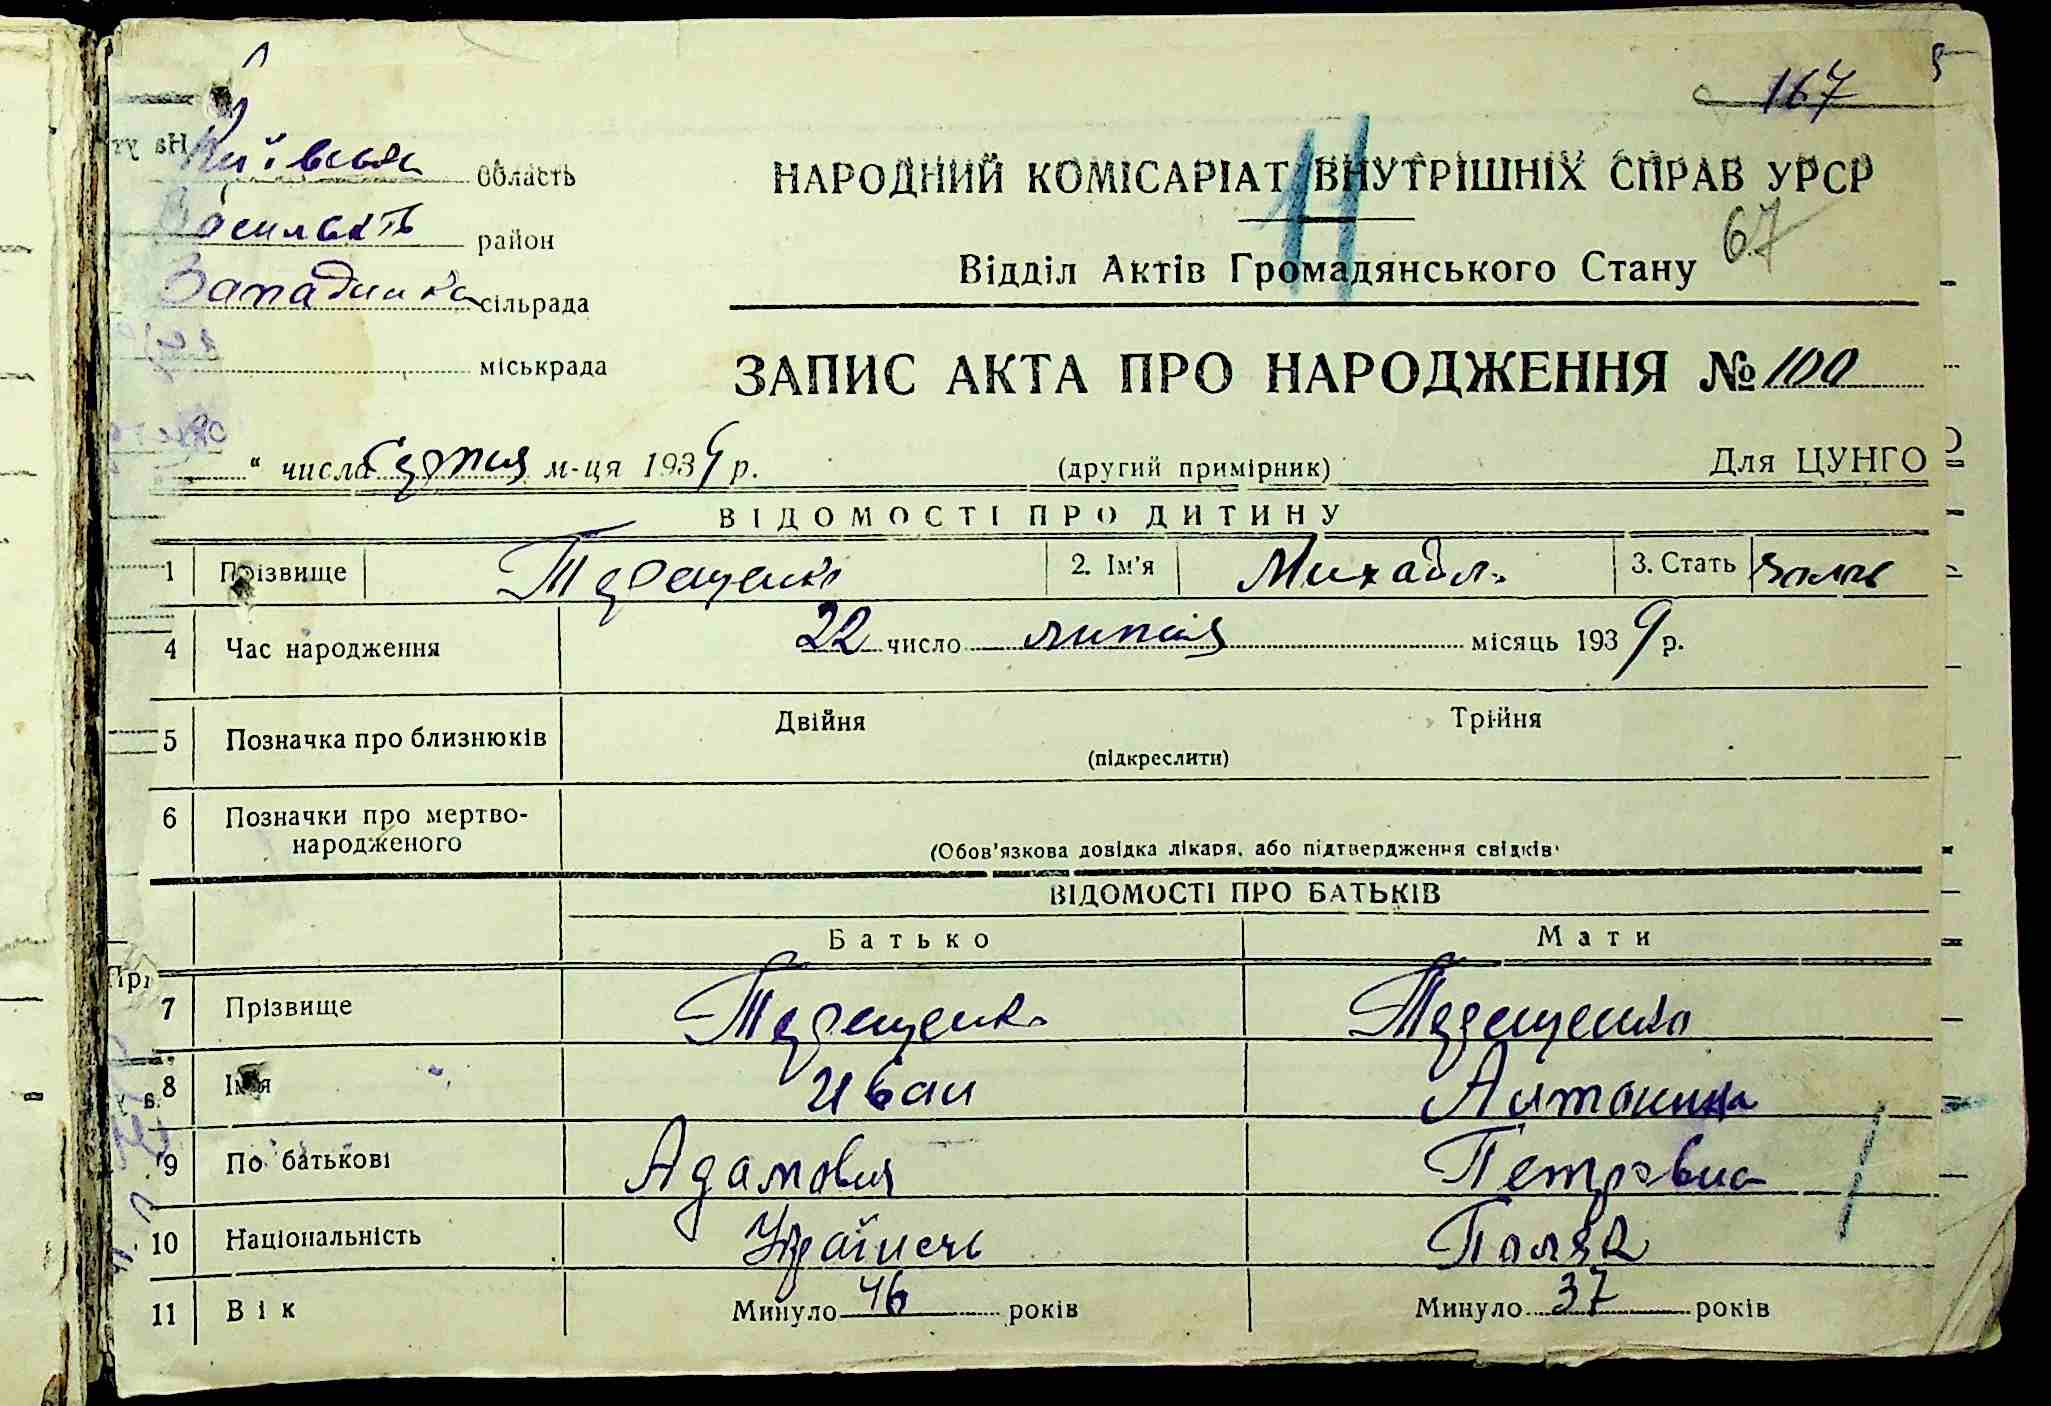 167
Київська область
Васильків район
Западинка сільрада
міськрада
НАРОДНИЙ КОМІСАРІАТ ВНУТРІШНІХ СПРАВ УРСР
67
Відділ Актів Громадянського Стану
ЗАПИС АКТА ПРО НАРОДЖЕННЯ № 100
" числа серпня м-ця 1939 р. (другий примірник) Для ЦУНГО
ВІДОМОСТІ ПРО ДИТИНУ
1 Прізвище Терещенко 2. Ім'я 3. Стать
4 Час народження 22 число липня місяць 1939 р.
5 Позначка про близнюків Двійня Трійня
(підкреслити)
6 Позначки про мертво-
народженого
(Обов'язкова довідка лікаря, або підтвердження свідків)
ВІДОМОСТІ ПРО БАТЬКІВ
Батько Мати
7 Прізвище Терещенко Терещенко
8 Ім'я Иван Антонина
9 По батькові Адамович Петровна
10 Національність Українець Поляк
11 Вік Минуло 46 років Минуло 37 років